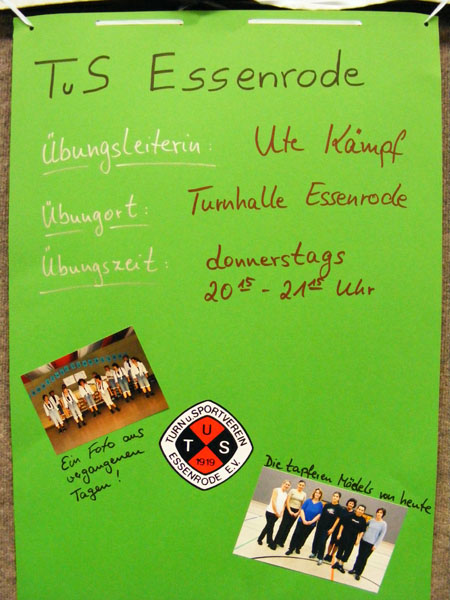 TuS Essenrode
Übungsleiterin: Ute Kämpf
Übungort: Turnhalle Essenrode
Übungszeit: donnerstags
20 15 - 21 15 Uhr
Ein Foto aus
vergangenen
Tagen!
TURN u. SPORTVEREIN
TUS
1919
ESSENRODE E.V.
Die tapferen Mädels von heute